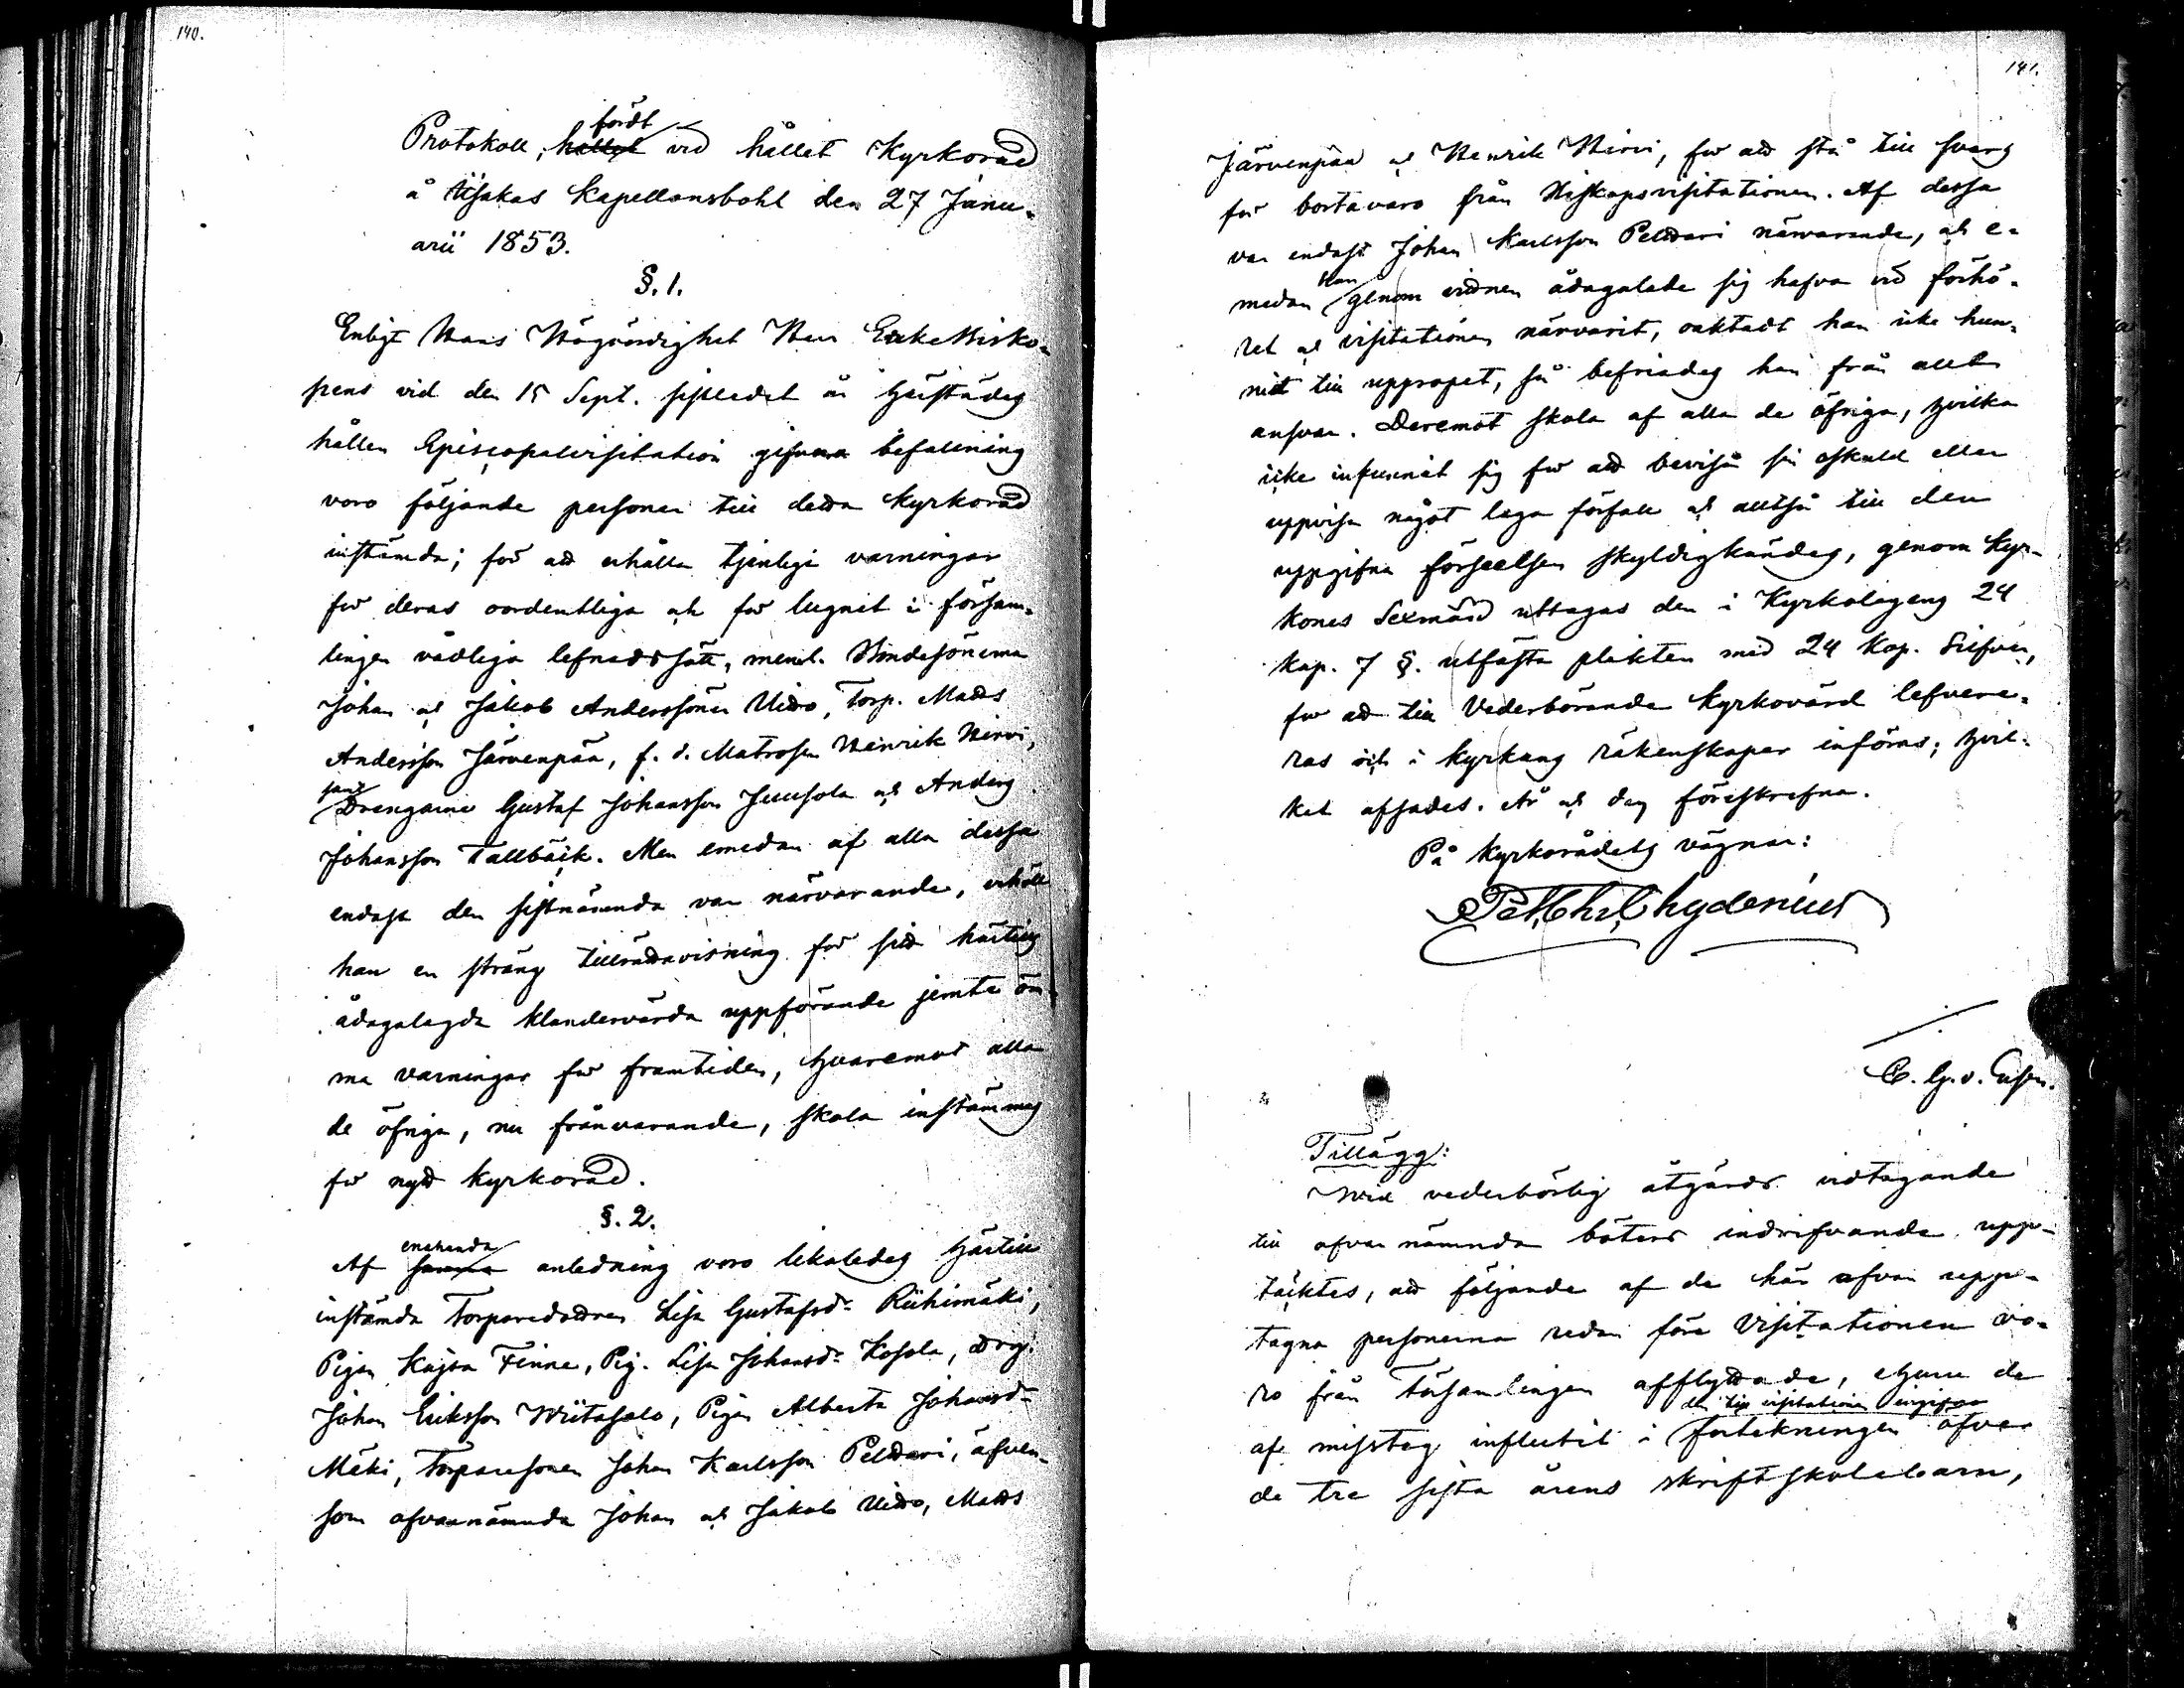 140.
Protokoll, hållet fördt vid hållet Kyrkoråd
å Käsakas Kapellansbohl den 27 Janu-
arii 1853.
§. 1.
Enligt Hans Högvördighet Herr Erke Bisko-
pens vid den 15 Sept. sistledet år härstädes
hållen Episcopalvisitation gifven befallning
voro följande personer till detta Kyrkoråd
instämda; för att erhålla tjenliga varningar
för deras oordentliga och för lugnet i försam-
lingen vådliga lefnadssätt, neml. Bindesönerna
Johan och Jakob Anderssöner Uitto, Torp. Matts
Andersson Järvenpää, f. d. Matrosen Henrik Hirvi,
samt Drengarne Gustaf Johansson Juusola och Anders
Johansson Tallbäck. Men emedan af alla dessa
endast den sistnämnda var närvarande, erhöll
han en sträng tillrättavisning för sitt härtills
ådagalagda klandervärda uppförande jemte öm-
ma varningar för framtiden, hvaremot alla
de öfriga, nu frånvarande, skola instämmas
för nytt Kyrkoråd.
§. 2.
Af samma enahanda anledning voro likaledes härtill
instämda Torparedottren Lisa Gustafsdr Riihimäki,
Pigan Kajsa Finne, Pig. Lisa Johansdr Kosola, Drg.
Johan Eriksson Wiitasalo, Pigan Alberta Johansdr
Mäki, Torparesonen Johan Karlsson Peldari, äfven-
som ofvannämnda Johan och Jakob Uitto, Matts
141.
Järvenpää och Henrik Hirvi, för att stå till svars
för bortavaro från Biskopsvisitationen. Af dessa
var endast Johan Karlsson Peldari närvarande, och e-
medan han genom vittnen ådagalade sig hafva vid förhö-
ret och visitationen närvarit, oaktadt han icke hun-
nit till uppropet, så befriades han från allt
ansvar. Deremot skola af alla de öfriga, hvilka
icke infunnit sig för att bevisa sin oskuld eller
uppvisa något laga förfall och alltså till den
uppgifna förseelsen skyldigkändes, genom Kyr-
kones Sexmän uttagas den i Kyrkolagens 24
Kap. 7 §. utfästa plikten med 24 Kop. Silfver,
för att till Vederbörande Kyrkovärd lefvere-
ras och i Kyrkans räkenskaper införas; hvil-
ket afsades. År och dag föreskrefna.
På Kyrkorådets vägnar:
Pet. Chr. Chydenius
Tillägg:
Wid vederbörlig åtgärds vidtagande
till ofvan nämnda böters indrifvande upp-
täcktes, att följande af de här ofvan uppe-
tagna personerna redan före Visitationen vo-
ro från Församlingen afflyttade, ehuru de
af misstag influtit i den till visitationen ingifna förtekningen öfver
de tre sista årens skriftskolebarn,